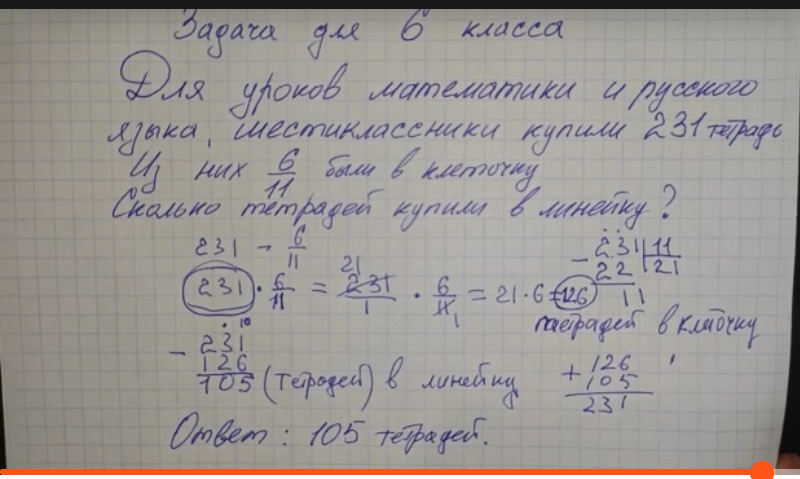 Задача для 6 класса
Для уроков математики и русского
языка, шестиклассники купили 231 тетрадь
Из них 6/11 были в клеточку
Сколько тетрадей купили в линейку?
231 - 6/11
231 · 6/11 = 231/1 · 6/11 = 21 · 6 = 126
21
1
тетрадей в клеточку
- 231 | 11
22 | 21
11
- 231
126
105 (тетродей) в линейку
+ 126
105
231
Ответ: 105 тетрадей.